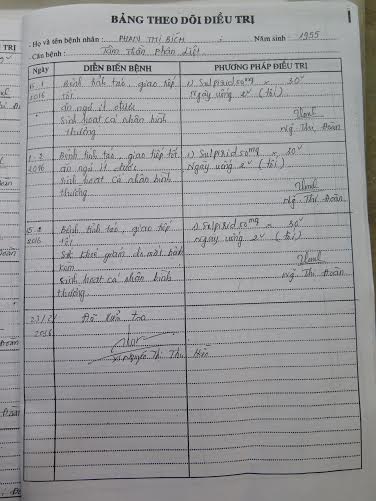 BẢNG THEO DÕI ĐIỀU TRỊ
Họ và tên bệnh nhân : PHAN THỊ BÍCH Năm sinh : 1955
Căn bệnh : Tâm Thần Phân Liệt
Ngày DIỄN BIẾN BỆNH PHƯƠNG PHÁP ĐIỀU TRỊ
15 1 Bệnh tỉnh táo, giao tiếp 1) Sulpirid 50mg x 30v
2016 tốt Ngày uống 2v (tối)
ăn ngủ ít được
Sinh hoạt cá nhân bình
thường
Ng Thị Đoan
1 2 Bệnh tỉnh táo, giao tiếp tốt 1) Sulpirid 50mg x 30v
2016 ăn ngủ ít được Ngày uống 2v (tối)
Sinh hoạt cá nhân bình
thường
Ng Thị Đoan
15 2 Bệnh tỉnh táo, giao tiếp 1) Sulpirid 50mg x 30v
2016 tốt Ngày uống 2v (tối)
Sức khoẻ giảm do mắt
kém
Sinh hoạt cá nhân bình
thường
Ng Thị Đoan
23/2 Đã kiểm tra
2016
Nguyễn Thị Thu